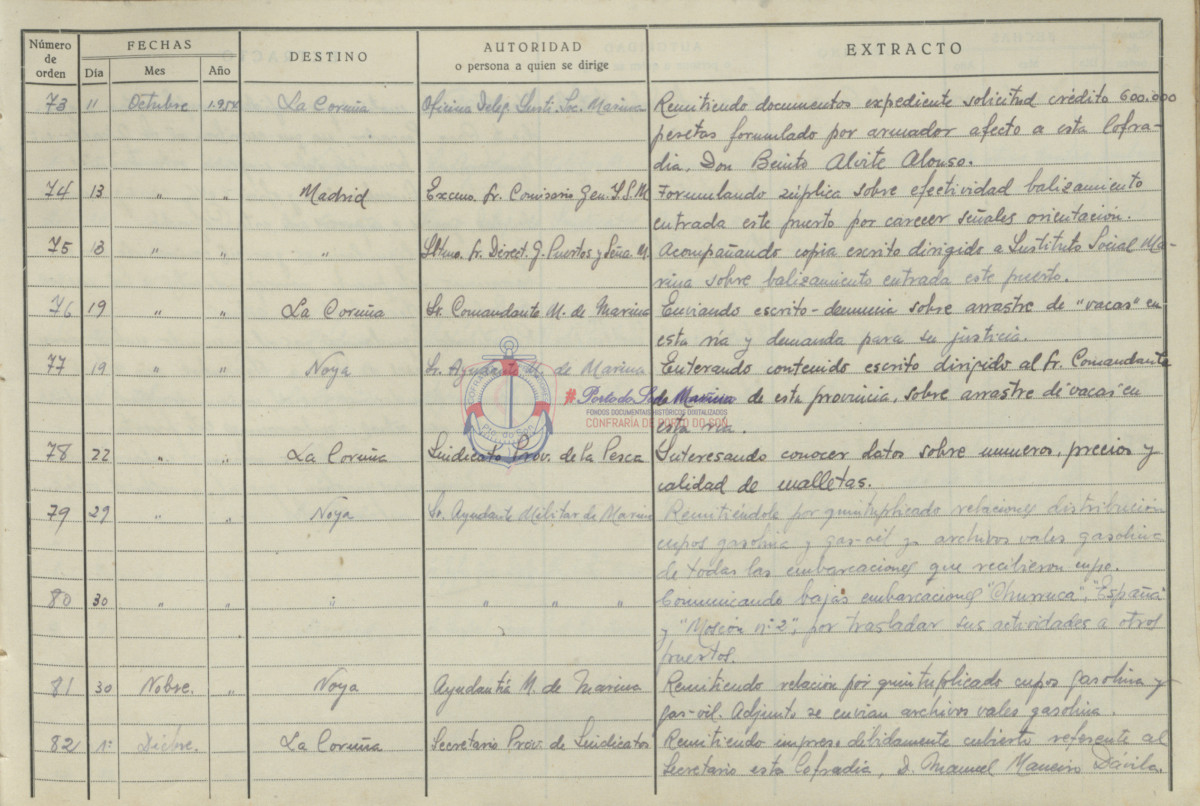 Número de orden FECHAS DESTINO AUTORIDAD o persona a quien se dirige EXTRACTO
Día Mes Año
73 11 Octubre La Coruña Oficina Deleg. Insti. Soc. Marina Remitiendo documentos expediente solicitud crédito 600.000
pesetas formulado por armador afecto a esta Cofra-
dia, Don Benito Alvite Alonso.
74 13 " " Madrid Excmo. Sr. Comisario Gen. I.S.M Formulando súplica sobre efectividad balizamiento
entrada este puerto por carecer señales orientación.
75 13 " " " Iltmo. Sr. Direct. G. Puertos y Seña. M. Acompañando copia escrito dirigido a Instituto Social Ma-
rina sobre balizamiento entrada este puerto.
76 19 " " La Coruña Sr. Comandante M. de Marina Enviando escrito-denuncia sobre arrastre de "vacas" en
esta ría y demanda para su justicia.
77 19 " " Noya Sr. Ayudante M. de Marina Enterando contenido escrito dirigido al Sr. Comandante
Marina de esta provincia, sobre arrastre de "vacas" en
esta ría.
#Porto do Son
FONDOS DOCUMENTAIS HISTÓRICOS DIGITALIZADOS
CONFRARÍA DE PORTO DO SON
78 22 " " La Coruña Sindicato Prov. de la Pesca Interesando conocer datos sobre numeros, precios y
calidad de malletas.
79 29 " " Noya Sr. Ayudante Militar de Marina Remitiéndole por quintuplicado relaciones distribución
cupos gasolina y gas-oil y archivos vales gasolina
de todas las embarcaciones que recibieron cupo.
80 30 " " " " " " Comunicando bajas embarcaciones "Churruca", "España"
y "Moscón nº 2", por trasladar sus actividades a otros
puertos.
81 30 Nobre. " Noya Ayudantía M. de Marina Remitiendo relación por quintuplicado cupos gasolina y
gas-oil. Adjunto se envian archivos vales gasolina.
82 1º Dicbre. La Coruña Secretario Prov. de Sindicatos Remitiendo impreso debidamente cubierto referente al
Secretario esta Cofradia, D. Manuel Maneiro Dávila.